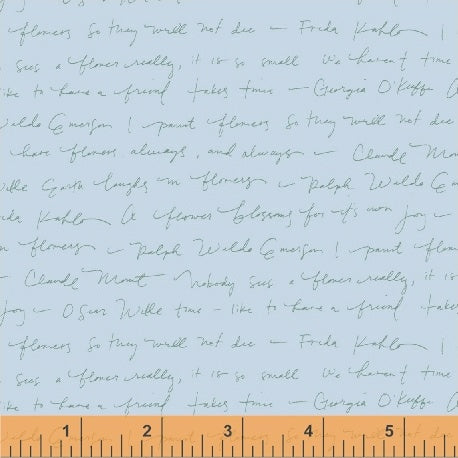 flowers so they will not die — Frida Kahlo I
sees a flower really, it is so small we haven't time
like to have a friend takes time — Georgia O'Keeffe A
Waldo Emerson I paint flowers so they will not die
have flowers always, and always — Claude Mon
Wilde Earth laughs in flowers — Ralph Waldo Em
ida Kahlo A flower blossoms for it's own joy —
n flowers — Ralph Waldo Emerson I paint flow
— Claude Monet Nobody sees a flower really, it is
joy — Oscar Wilde time — like to have a friend takes
flowers so they will not die — Frida Kahlo I
sees a flower really, it is so small we haven't time
like to have a friend takes time — Georgia O'Keeffe A
1 2 3 4 5